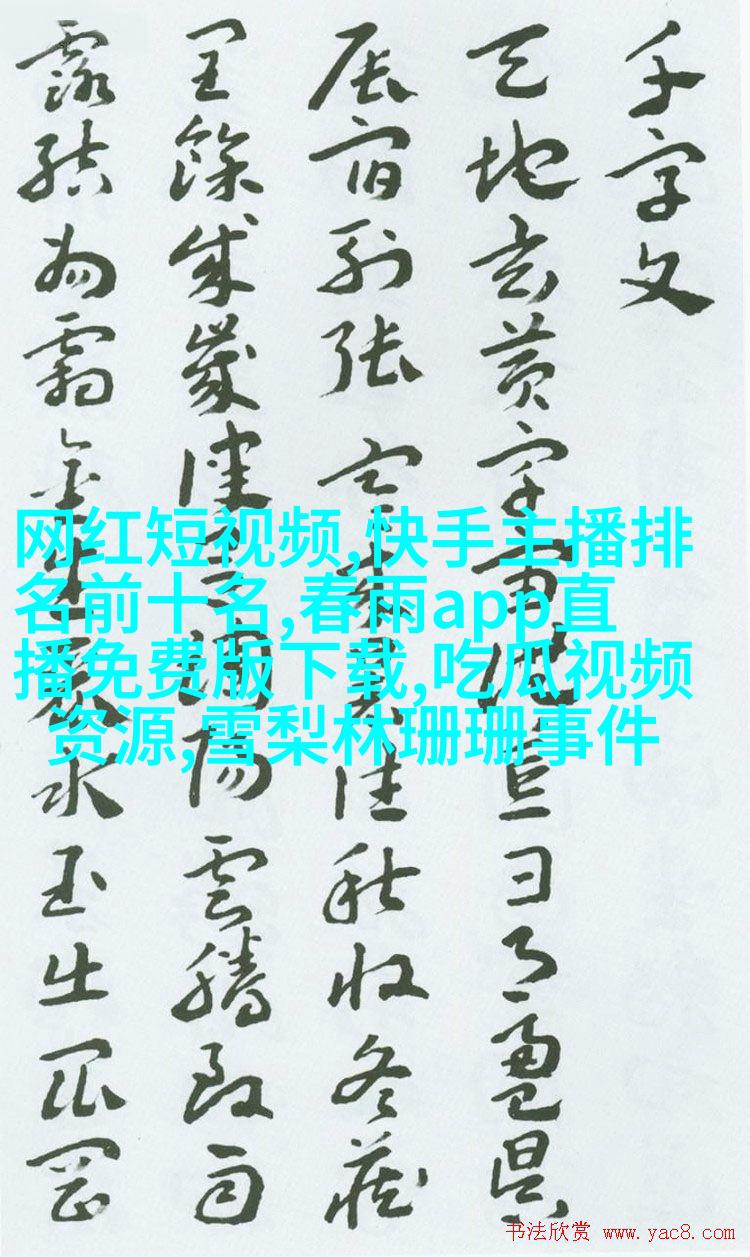 千字文
天地玄黃宇宙洪荒日月盈昃
辰宿列張寒來暑往秋收冬藏
閏餘成歲律呂調陽雲騰致雨
露結為霜金生麗水玉出崑岡
网红短视频,快手主播排
名前十名,春雨app直
播免费版下载,吃瓜视频
资源,雪梨林珊珊事件
书法欣赏 www.yac8.com